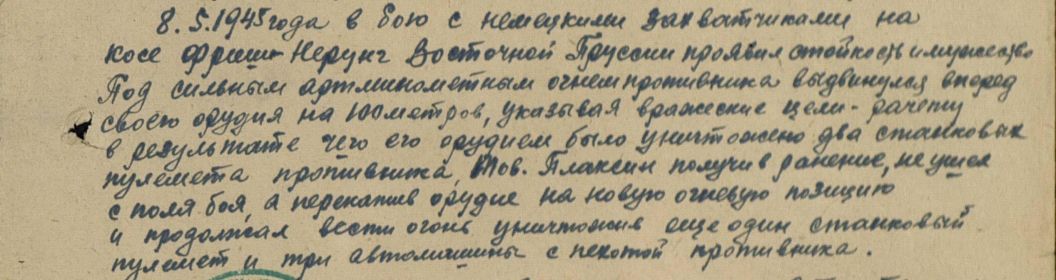 8.5.1945 года в бою с немецкими захватчиками на
косе Фриш-Нерунг Восточной Пруссии проявил стойкость и мужество
Под сильным артминометным огнем противника выдвинулся вперед
своего орудия на 100 метров, указывая вражеские цели - расчету
в результате чего его орудием было уничтожено два станковых
пулемета противника, Тов. Плаксин получив ранение, не ушел
с поля боя, а перекатив орудие на новую огневую позицию
и продолжал вести огонь уничтожив еще один станковый
пулемет и три автомашины с пехотой противника.